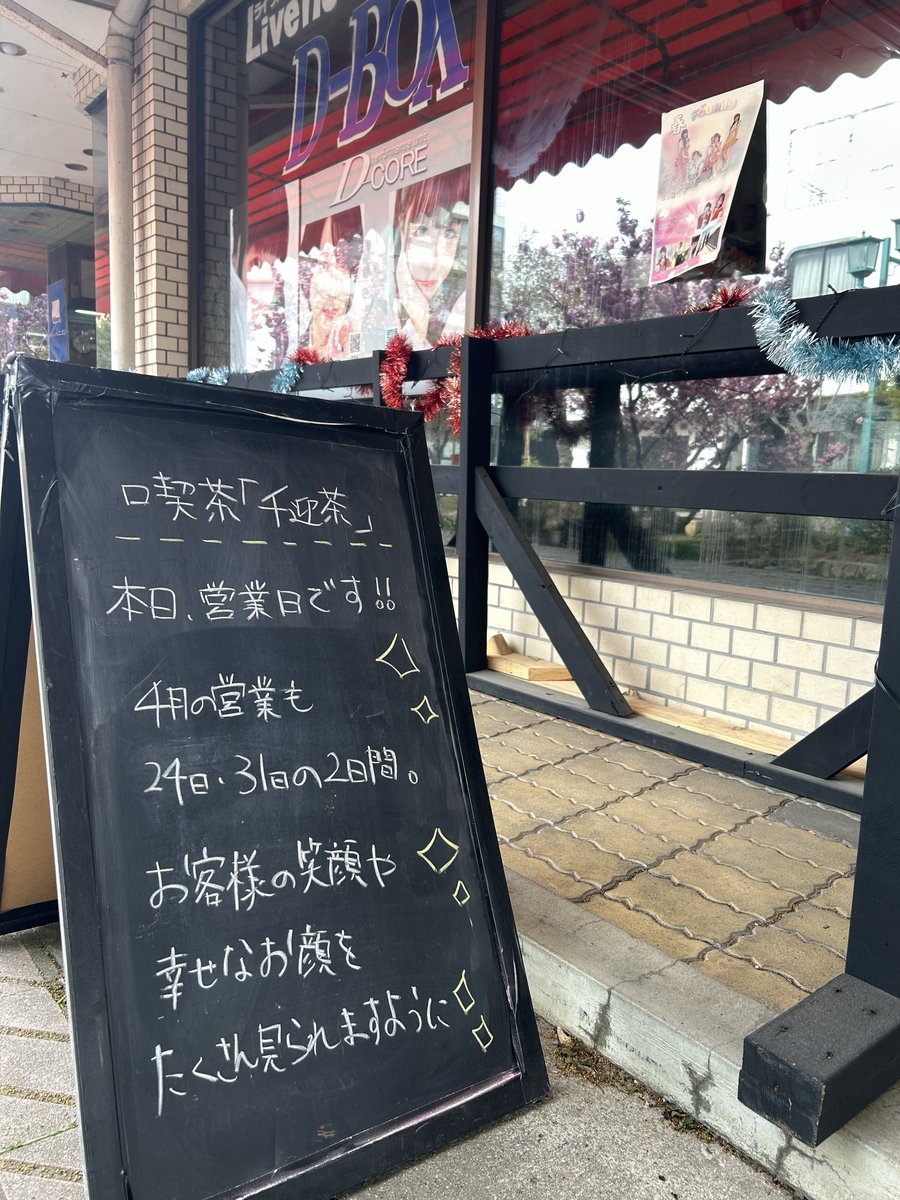 D-BOX
D-CORE
口喫茶「千迎茶」
本日、営業日です!!
4月の営業も
24日・31日の2日間。
お客様の笑顔や
幸せなお顔を
たくさん見られますように